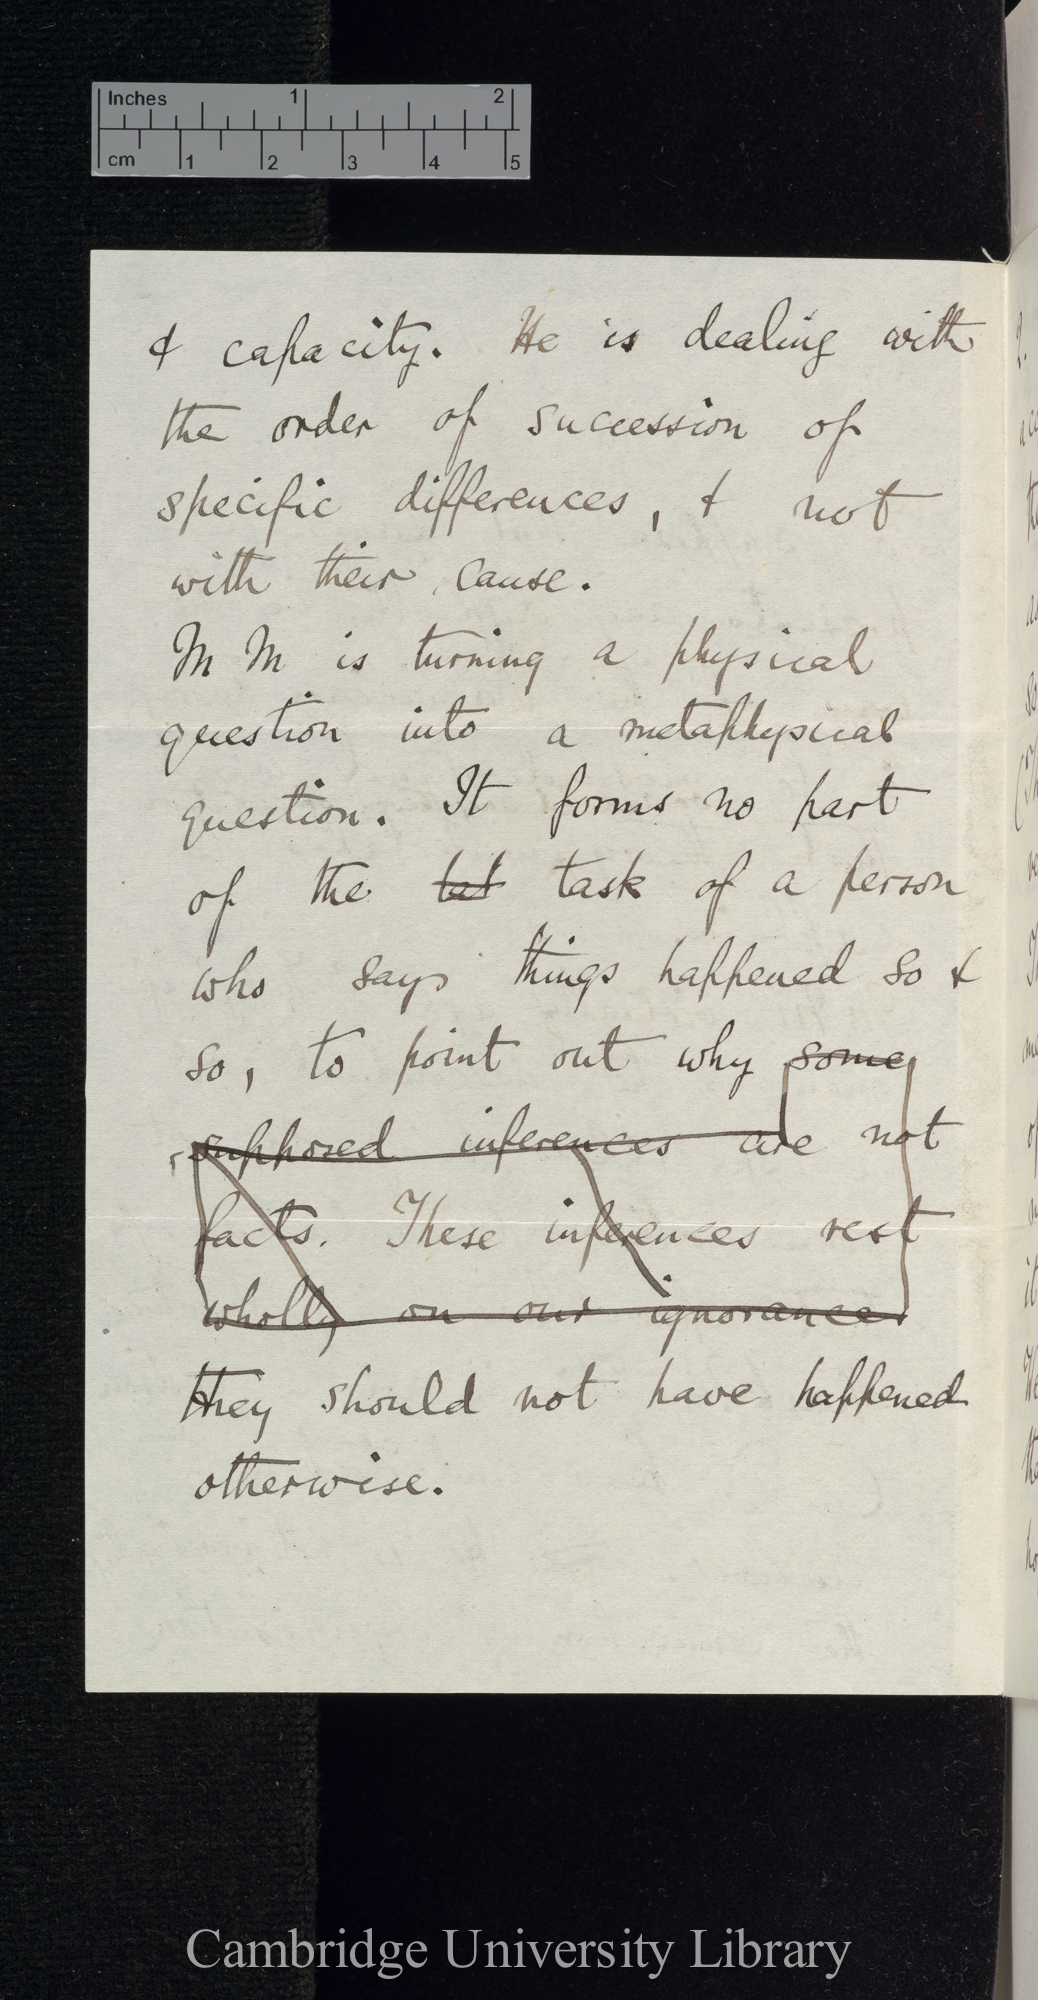 Inches 1 2
cm 1 2 3 4 5
& capacity. He is dealing with
the order of succession of
specific differences, & not
with their cause.
M M is turning a physical
question into a metaphysical
question. It forms no part
of the task of a person
who says things happened so &
so, to point out why some
supposed inferences are not
facts. These inferences rest
wholly on our ignorance.
they should not have happened
otherwise.
Cambridge University Library